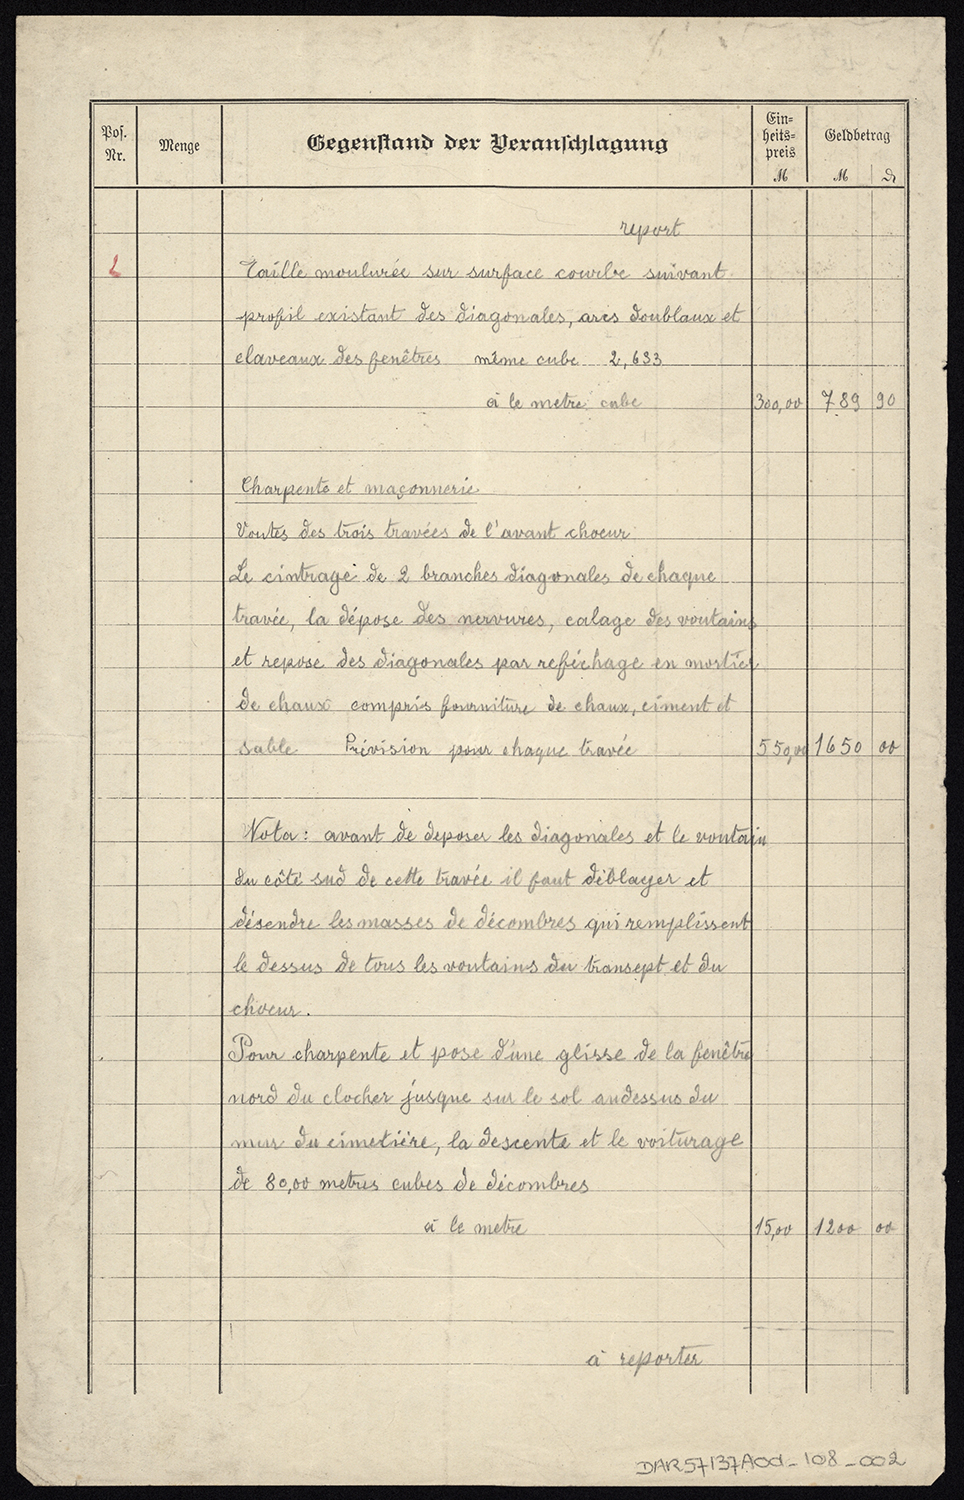 Pos. Nr. Menge Gegenstand der Veranschlagung Einheitspreis M Geldbetrag M ₰
report
2 Taille moulurée sur surface courbe suivant
profil existant des diagonales, arcs doublaux et
claveaux des fenêtres même cube 2,633
à le metre cube 300,00 789 90
Charpente et maçonnerie
Voutes des trois travées de l'avant choeur
Le cintrage de 2 branches diagonales de chaque
travée, la dépose des nervures, calage des voutains
et repose des diagonales par refichage en mortier
de chaux compris fourniture de chaux, ciment et
sable Prévision pour chaque travée 550,00 1650 00
Nota : avant de deposer les diagonales et le voutain
du côté sud de cette travée il faut déblayer et
désendre les masses de décombres qui remplissent
le dessus de tous les voutains du transept et du
choeur.
Pour charpente et pose d'une glisse de la fenêtre
nord du clocher jusque sur le sol audessus du
mur du cimetière, la descente et le voiturage
de 80,00 metres cubes de décombres
à le metre 15,00 1200 00
à reporter
DAR57137A0d-108-002